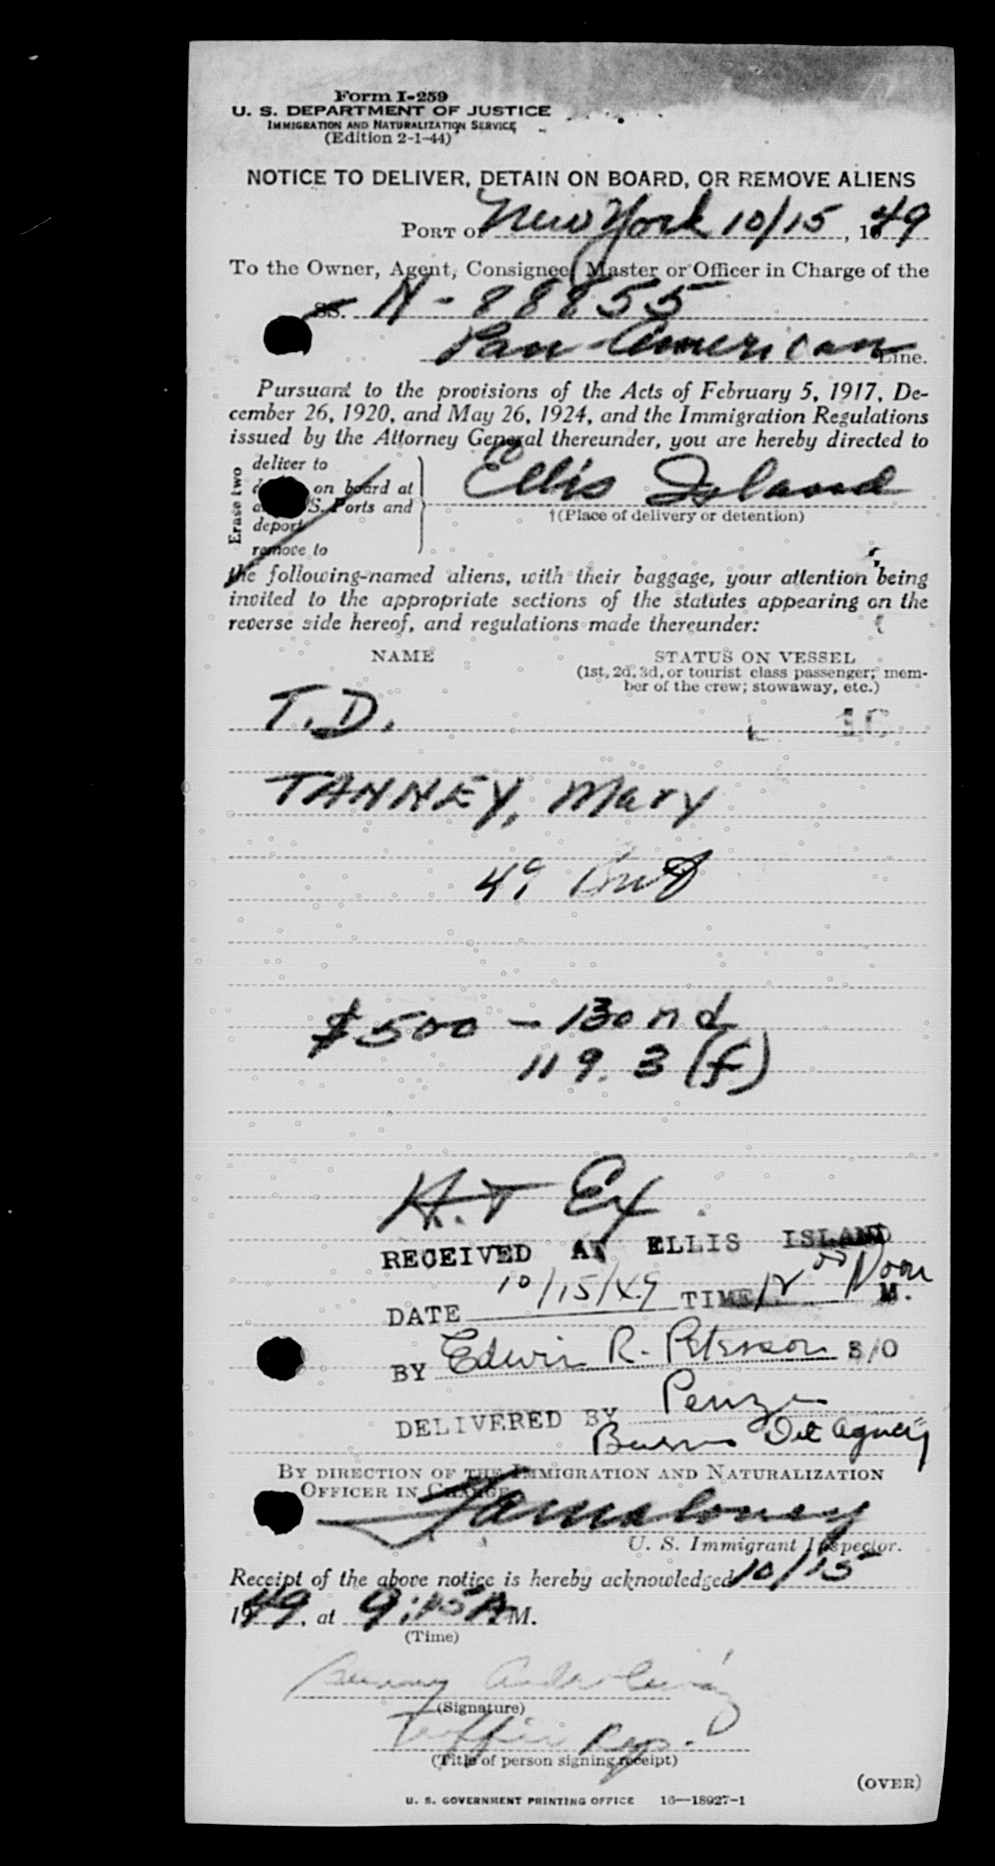 Form I-259
U. S. DEPARTMENT OF JUSTICE
IMMIGRATION AND NATURALIZATION SERVICE
(Edition 2-1-44)
NOTICE TO DELIVER, DETAIN ON BOARD, OR REMOVE ALIENS
PORT OF New York 10/15, 1949
To the Owner, Agent, Consignee, Master or Officer in Charge of the
SS. N-88855
Pan American Line.
Pursuant to the provisions of the Acts of February 5, 1917, De-
cember 26, 1920, and May 26, 1924, and the Immigration Regulations
issued by the Attorney General thereunder, you are hereby directed to
Erase two
deliver to
on board at
S. Ports and
deport
remove to
Ellis Island
†(Place of delivery or detention)
the following-named aliens, with their baggage, your attention being
invited to the appropriate sections of the statutes appearing on the
reverse side hereof, and regulations made thereunder:
NAME STATUS ON VESSEL
(1st, 2d, 3d, or tourist class passenger; mem-
ber of the crew; stowaway, etc.)
T.D. 1C
TANNEY, Mary
49
$500 - Bond
119.3 (f)
H.T Ex.
RECEIVED AT ELLIS ISLAND
DATE 10/15/49 TIME 12 00 Noon M.
BY Edwin R. Peterson S/O
DELIVERED BY
Burns Det Agency
BY DIRECTION OF THE IMMIGRATION AND NATURALIZATION
OFFICER IN CHARGE
U. S. Immigrant Inspector.
Receipt of the above notice is hereby acknowledged 10/15
1949, at 9:15 A M.
(Time)
(Signature)
Traffic Rep.
(Title of person signing receipt)
(OVER)
U. S. GOVERNMENT PRINTING OFFICE 16—18927-1